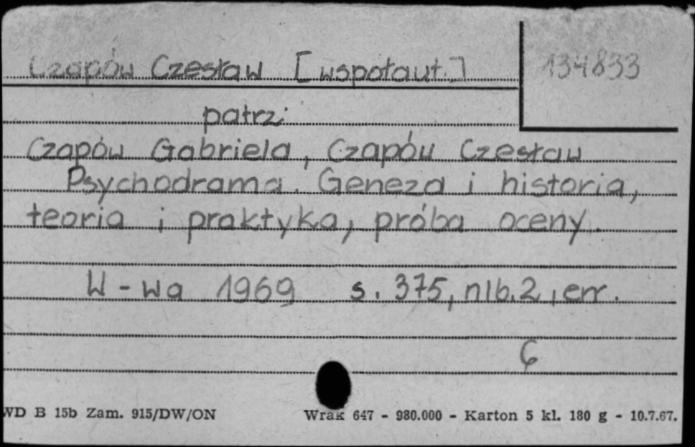 Czapów Czesław [współaut.] 134833
patrz
Czapów Gabriela, Czapów Czesław
Psychodrama. Geneza i historia,
teoria i praktyka, próba oceny.
W-wa 1969 s. 375, nlb. 2, err.
6
WD B 15b Zam. 915/DW/ON Wrak 647 - 980.000 - Karton 5 kl. 180 g - 10.7.67.